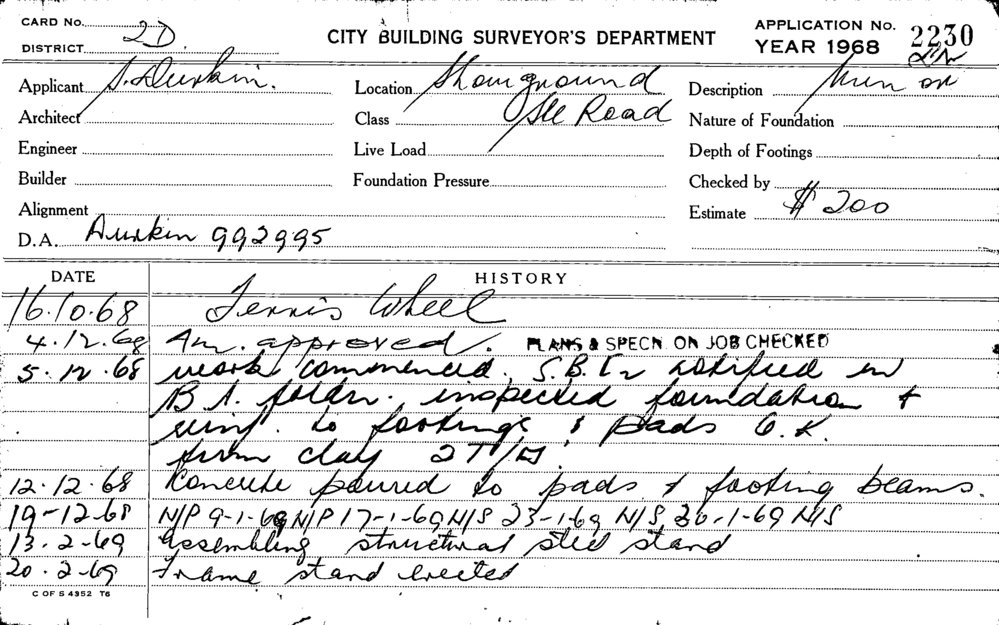 CARD No. 2D
DISTRICT
CITY BUILDING SURVEYOR'S DEPARTMENT
APPLICATION No. 2230
YEAR 1968
Applicant S. Durkin.
Location Showground
Description
Architect
Class Road
Nature of Foundation
Engineer
Live Load
Depth of Footings
Builder
Foundation Pressure
Checked by
Alignment
Estimate $200
D.A. Durkin 992995
DATE HISTORY
16.10.68 Ferris Wheel
4.12.68 Am. approved. PLANS & SPECN. ON JOB CHECKED
5.12.68 work commenced. notified in
inspected foundation &
to footings & pads O.K.
firm clay
12.12.68 Concrete poured to pads & footing beams.
19-12-68 N/P 9-1-69 N/P 17-1-69 N/S 23-1-69 N/S 30-1-69 N/S
13.2-69 Assembling structural steel stand
20.2-69 Frame stand erected
C OF S 4352 T6